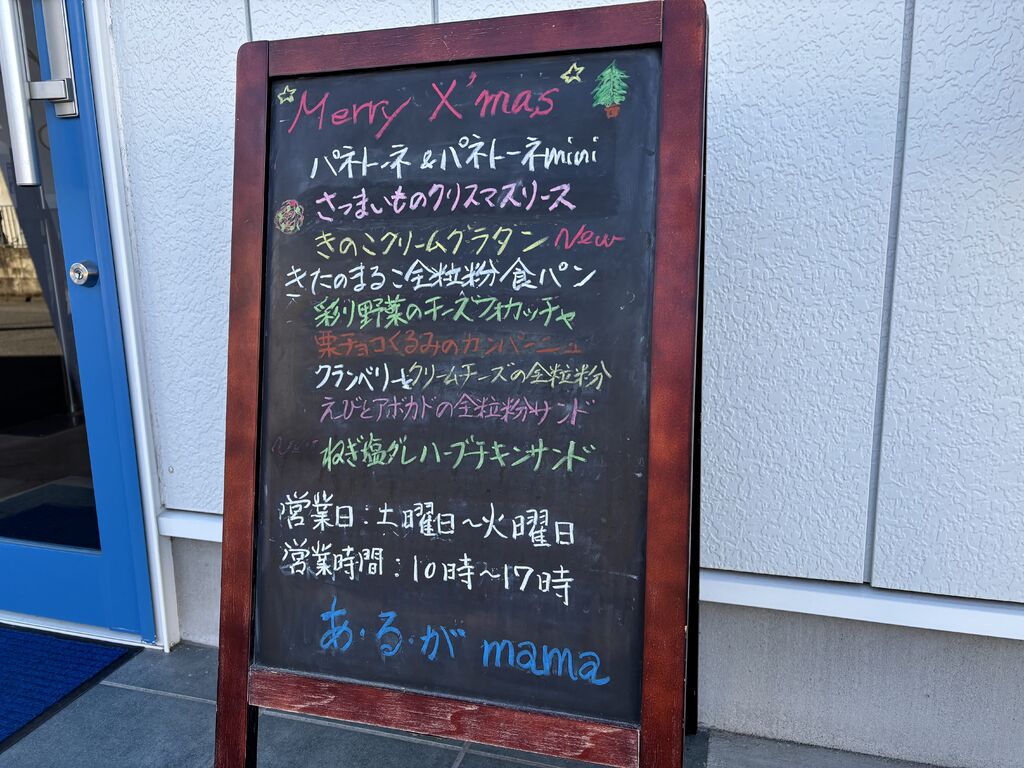 Merry X'mas
パネトーネ&パネトーネmini
さつまいものクリスマスリース
きのこクリームグラタン New
きたのまるこ全粒粉食パン
彩り野菜のチーズフォカッチャ
栗チョコくるみのカンパーニュ
クランベリーとクリームチーズの全粒粉
えびとアボカドの全粒粉サンド
New ねぎ塩ダレハーブチキンサンド
営業日:土曜日~火曜日
営業時間:10時~17時
あ・る・が mama